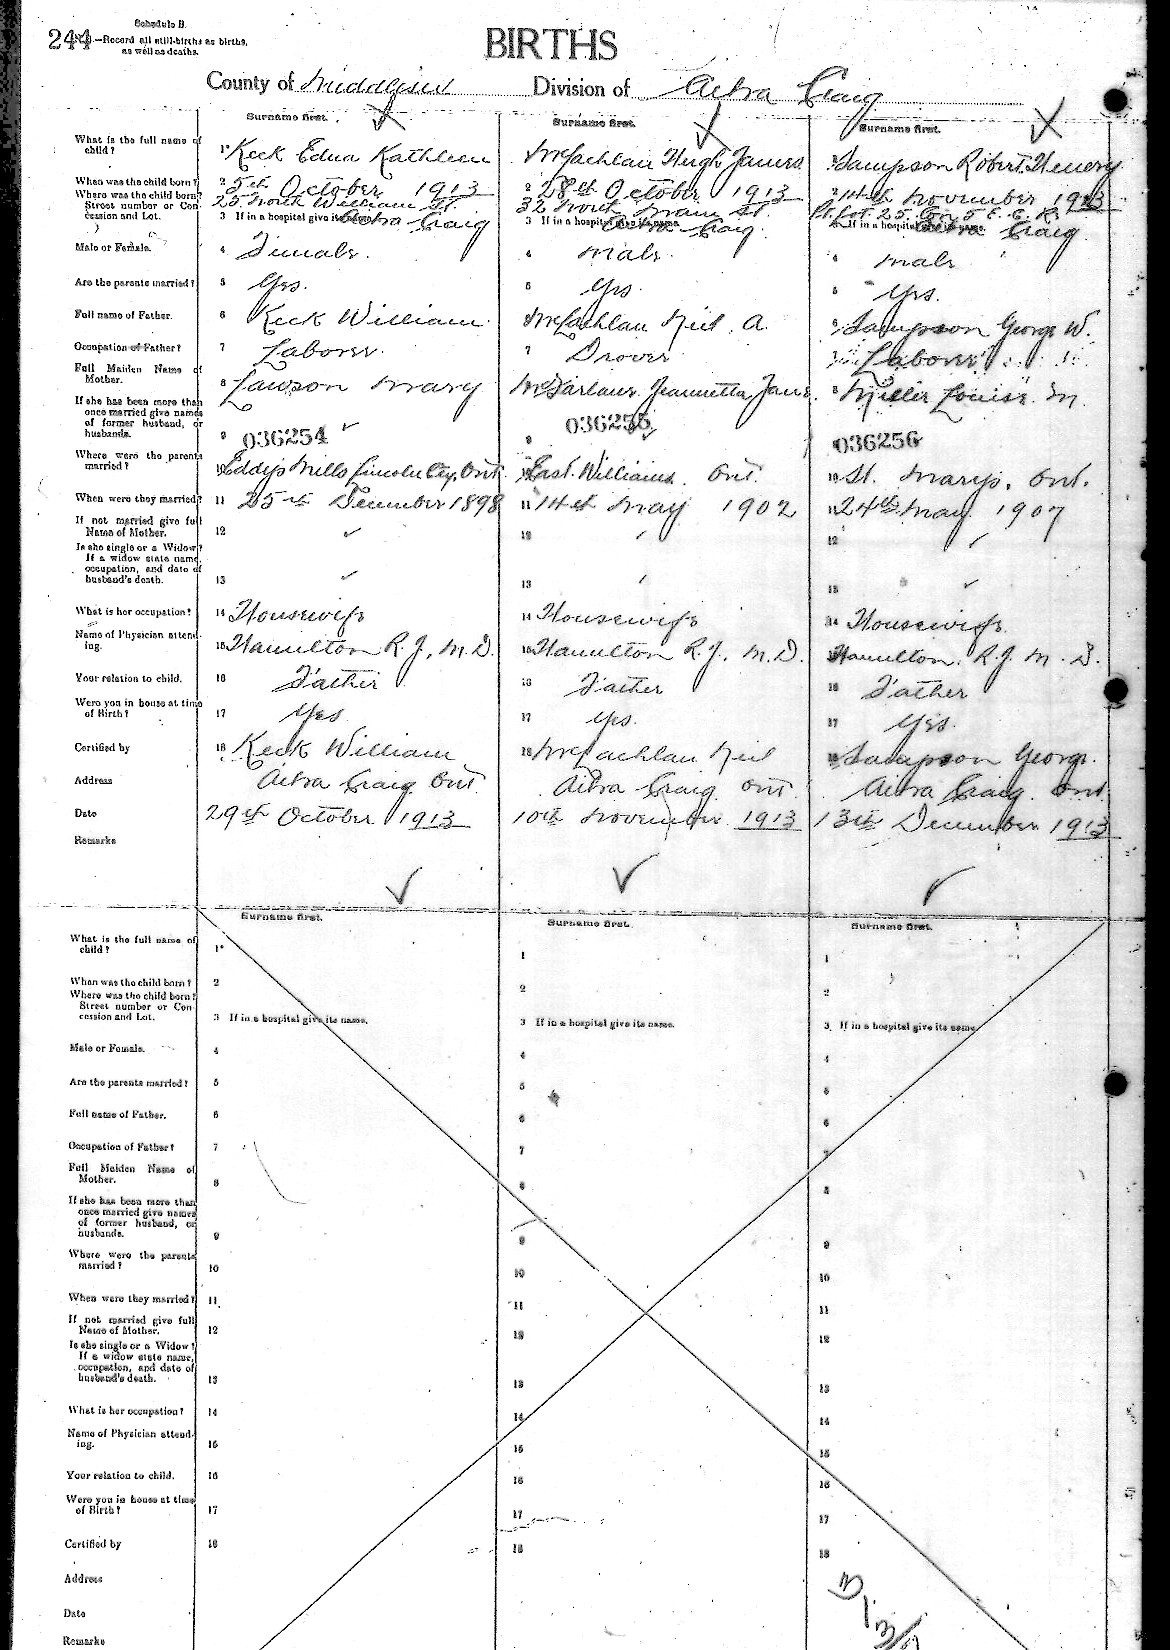 Schedule B.
244
—Record all still-births as births,
as well as deaths.
BIRTHS
County of Middlesex Division of Ailsa Craig
Surname first. Surname first. Surname first.
What is the full name of child? 1 Keck Edna Kathleen McLachlan Hugh James Sampson Robert Henery
When was the child born? 2 5th October 1913 2 28th October 1913 2 14th November 1913
Where was the child born? Street number or Concession and Lot. 25 North William St. 32 North Main St. Pt. Lot 25. Con 5 E. C. R.
3 If in a hospital give its name. Ailsa Craig 3 If in a hospital give its name. Ailsa Craig If in a hospital give its name. Ailsa Craig
Male or Female. 4 Female. 4 Male 4 Male
Are the parents married? 5 Yes. 5 Yes 5 Yes.
Full name of Father. 6 Keck William McLachlan Neil A. Sampson George W.
Occupation of Father? 7 Laborer. 7 Drover Laborer
Full Maiden Name of Mother. 8 Lawson Mary McFarlane Jeannetta Jane 8 Miller Louise M.
If she has been more than once married give names of former husband, or husbands. 9 036254 9 036255 036256
Where were the parents married? 10 Eddys Mills Lincoln Cty. Ont. East Williams Ont. 10 St. Marys. Ont.
When were they married? 11 25th December 1898 11 14th May 1902 11 24th May 1907
If not married give full Name of Mother. 12 12 12
Is she single or a Widow? If a widow state name, occupation, and date of husband's death. 13 13 13
What is her occupation? 14 Housewife 14 Housewife 14 Housewife
Name of Physician attending. 15 Hamilton R. J., M.D. 15 Hamilton R. J., M.D. Hamilton. R. J. M. D.
Your relation to child. 16 Father 16 Father 16 Father
Were you in house at time of Birth? 17 Yes 17 Yes. 17 Yes.
Certified by 18 Keck William 18 McLachlan Neil Sampson George.
Address Ailsa Craig Ont. Ailsa Craig Ont Ailsa Craig Ont.
Date 29th October 1913 10th November 1913 13th December 1913
Remarks
Surname first. Surname first. Surname first.
What is the full name of child? 1 1 1
When was the child born? 2 2 2
Where was the child born? Street number or Concession and Lot. 3 If in a hospital give its name. 3 If in a hospital give its name. 3 If in a hospital give its name
Male or Female. 4 4 4
Are the parents married? 5 5 5
Full name of Father. 6 6 6
Occupation of Father? 7 7 7
Full Maiden Name of Mother. 8 8 8
If she has been more than once married give names of former husband, or husbands. 9 9 9
Where were the parents married? 10 10 10
When were they married? 11 11 11
If not married give full Name of Mother. 12 12 12
Is she single or a Widow? If a widow state name, occupation, and date of husband's death. 13 13 13
What is her occupation? 14 14 14
Name of Physician attending. 15 15 15
Your relation to child. 16 16 16
Were you in house at time of Birth? 17 17 17
Certified by 18 18 18
Address
Date
Remarks